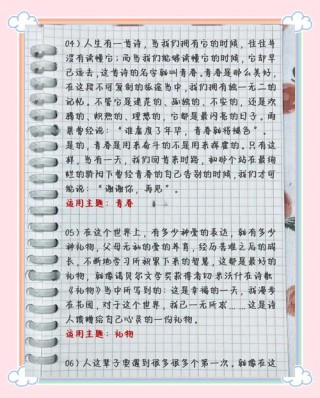 04）人生有一首诗，当我们拥有它的时候，往往并
没有读懂它；而当我们能够读懂它的时候，它却早
已远去，这首诗的名字就叫青春。青春是那么美好，
在这段不可复制的旅途当中，我们拥有独一无二的
记忆。不管它是迷茫的、孤独的、不安的，还是欢
腾的、炽热的、理想的，它都是最闪亮的日子。雨
果曾经说：“谁虚度了年华，青春就将褪色”。
是的，青春是用来奋斗的不是用来挥霍的。只有这
样，当有一天，我们回首来时路，和那个站在最绚
烂的骄阳下曾经青春的自己告别的时候，我们才可
能说：“谢谢你，再见”。
适用主题：青春
05）在这个世界上，有多少种爱的表达，就有多少
种礼物。父母无私的爱的养育，经历苦难之后的成
长，不断地学习所积累下来的智慧，这都是最好的
礼物。就像诺贝尔文学奖获得者切·米沃什在诗歌
《礼物》当中所写到的：这是幸福的一天，我漫步
在花园，对于这个世界，我已一无所求……这是诗
人馈赠给自己心灵的一份礼物。
适用主题：礼物
06）人这辈子要遇到很多很多个第一次，就像在这